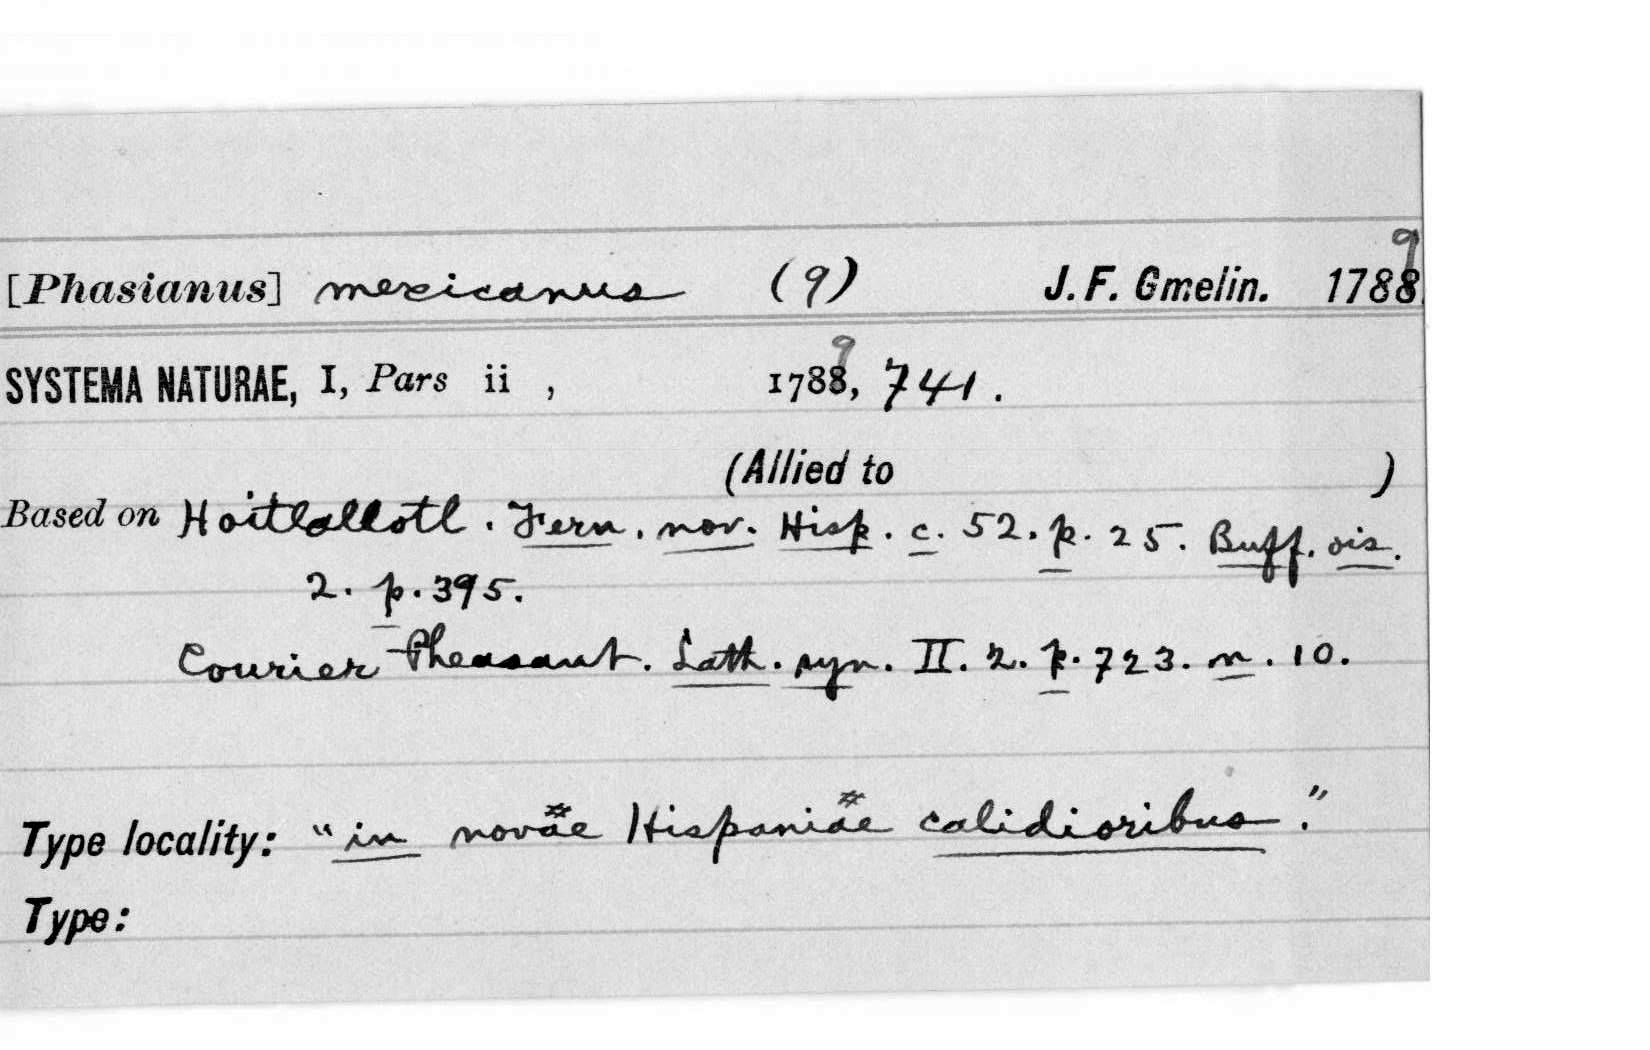 [Phasianus] mexicanus (9) J. F. Gmelin. 17889
SYSTEMA NATURAE, I, Pars ii , 17889, 741.
(Allied to )
Based on Hoitlallotl. Fern. nov. Hisp. c. 52. p. 25. Buff. ois.
2. p. 395.
Courier Pheasant. Lath. syn. II. 2. p. 723. n. 10.
Type locality: "in novae Hispaniae calidioribus."
Type: